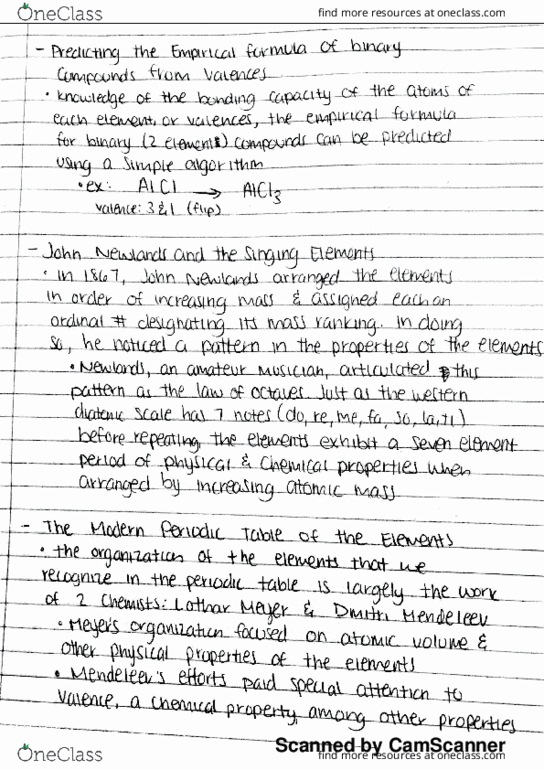 OneClass
find more resources at oneclass.com
- Predicting the Empirical formula of binary
Compounds from Valences
• Knowledge of the bonding capacity of the atoms of
each element, or valences, the empirical formula
for binary (2 elements) compounds can be predicted
using a simple algorithm
• ex: AlCl → AlCl3
valence: 3 & 1 (flip)
- John Newlands and the Singing Elements
• In 1867, John Newlands arranged the elements
in order of increasing mass & assigned each an
ordinal # designating its mass ranking. In doing
so, he noticed a pattern in the properties of the elements
• Newlands, an amateur musician, articulated this
pattern as the law of octaves. Just as the western
diatonic scale has 7 notes (do, re, me, fa, so, la, ti)
before repeating the elements exhibit a seven element
period of physical & chemical properties when
arranged by increasing atomic mass
- The Modern Periodic Table of the Elements
• the organization of the elements that we
recognize in the periodic table is largely the work
of 2 Chemists: Lothar Meyer & Dmitri Mendeleev
• Meyer's organization focused on atomic volume &
other physical properties of the elements
• Mendeleev's efforts paid special attention to
Valence, a chemical property, among other properties
Scanned by CamScanner
OneClass
find more resources at oneclass.com